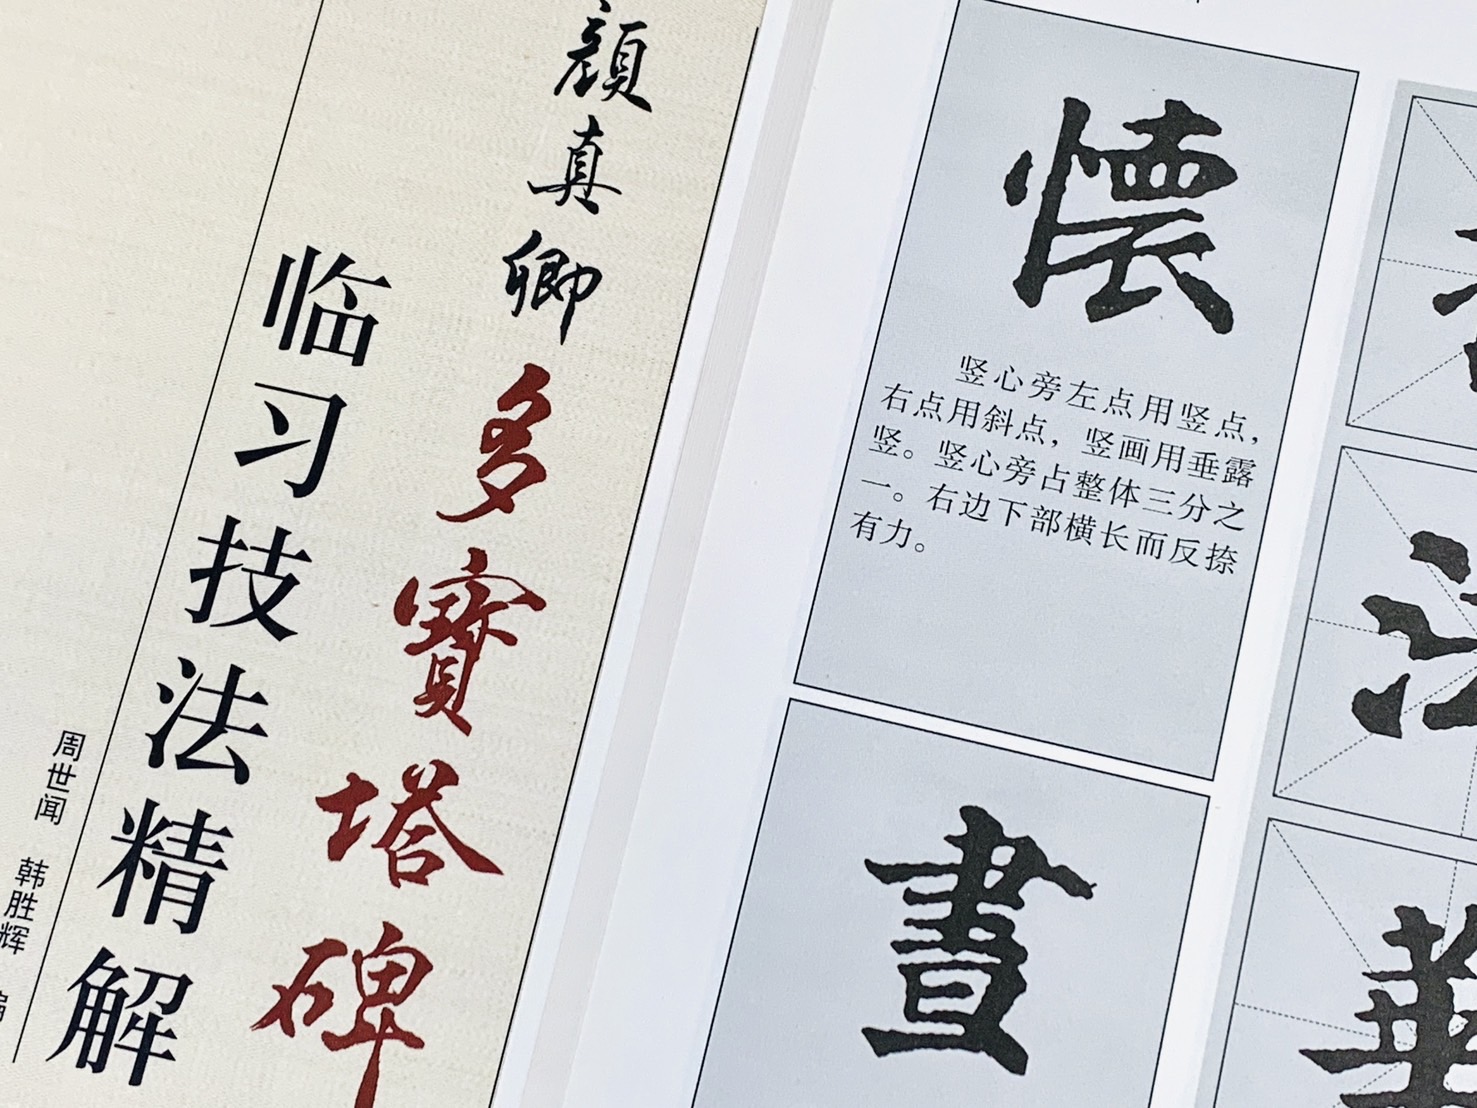 顔真卿
多寳塔碑
临习技法精解
周世闻 韩胜辉
懐
竖心旁左点用竖点，
右点用斜点，竖画用垂露
竖。竖心旁占整体三分之
一。右边下部横长而反捺
有力。
晝
法
華